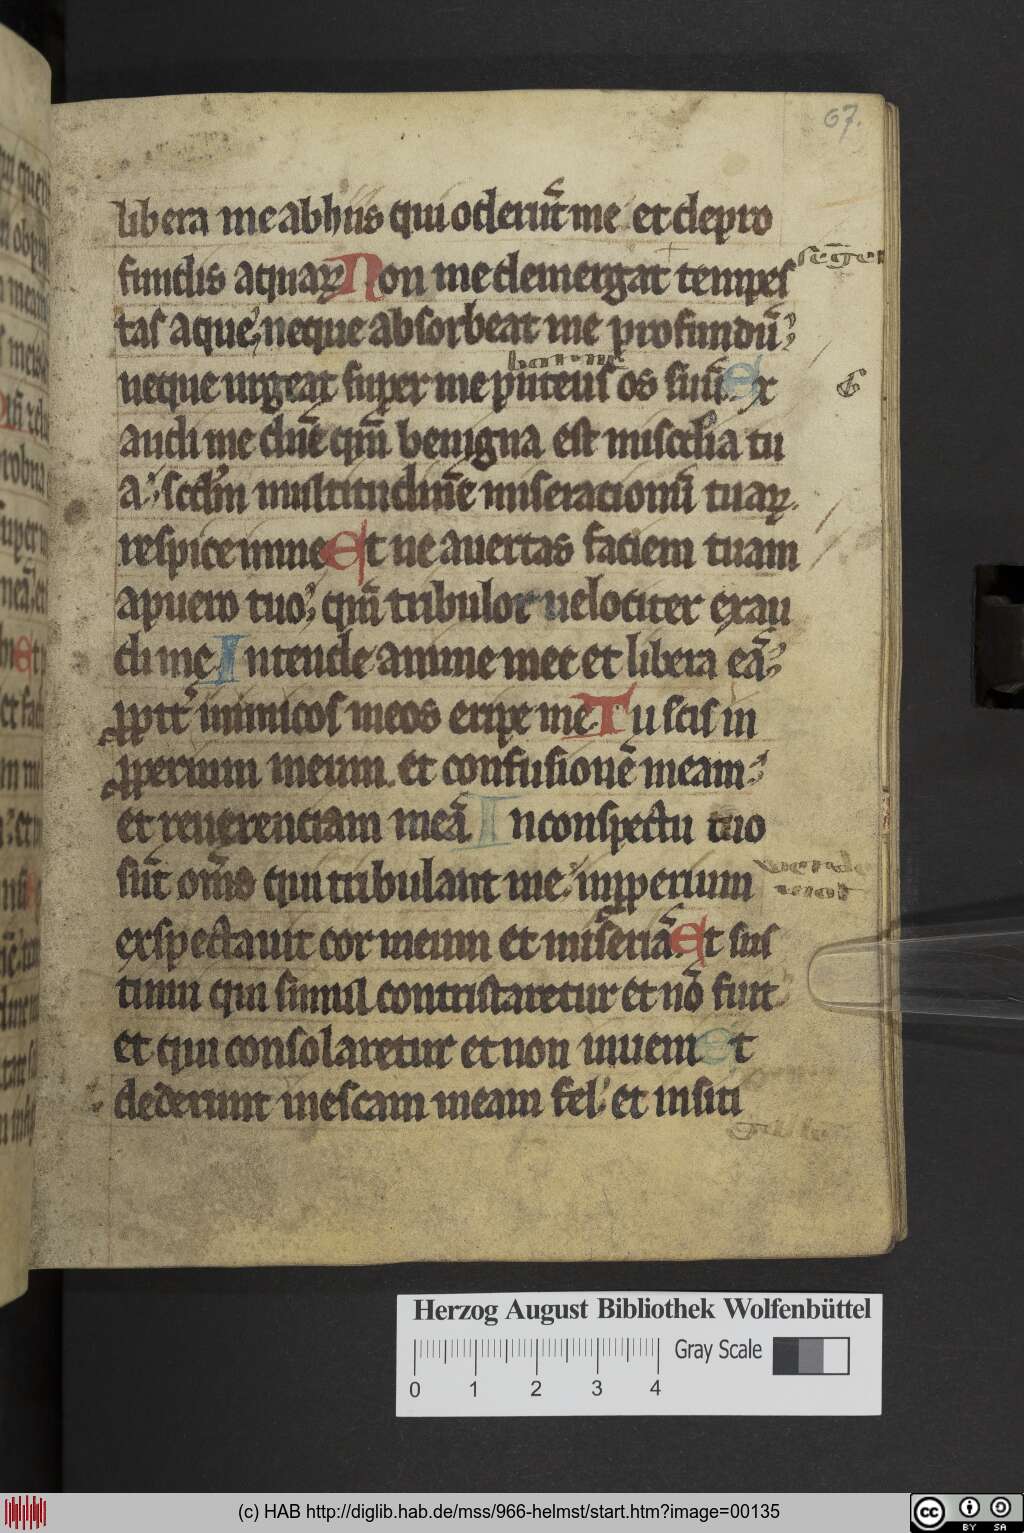 67.
libera me ab hiis qui oderūt me et de pro
fundis aquaꝝ Non me demergat tempes
tas aque neque absorbeat me profundū
neque urgeat super me puteus os suū Ex
audi me dn̄e qm̄ benigna est mis̄cdia tu
a scd̄m multitudinē miseracionū tuaꝝ
respice in me Et ne avertas faciem tuam
a puero tuo qm̄ tribulor velociter exau
di me Intende anime mee et libera eā
ꝓpt̄ inimicos meos eripe me Tu scis in
ꝓperium meum et confusionē meam
et reverenciam meā In conspectu tuo
sūt om̄s qui tribulant me inꝓperium
exspectavit cor meum et miseriā Et sus
tinui qui simul contristaretur et nō fuit
et qui consolaretur et non inveni Et
dederunt in escam meam fel et in siti
Herzog August Bibliothek Wolfenbüttel
Gray Scale
0 1 2 3 4
(c) HAB http://diglib.hab.de/mss/966-helmst/start.htm?image=00135
cc BY SA